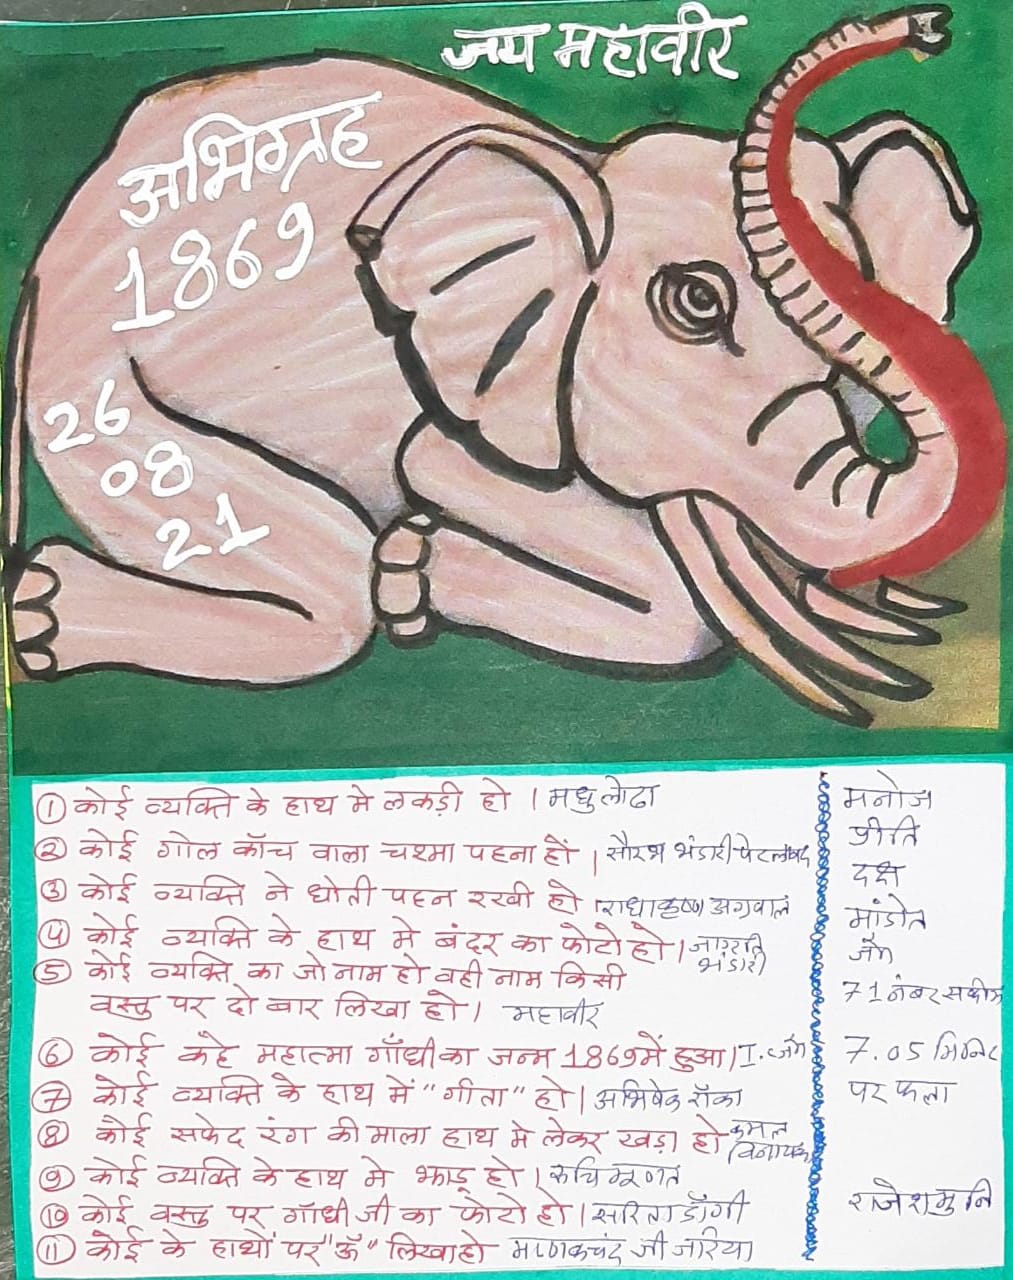 जय महावीर
अभिग्रह
1869
26
08
21
① कोई व्यक्ति के हाथ मे लकड़ी हो । मधु लोढा
② कोई गोल कॉच वाला चश्मा पहना हों । सौरभ भंडारी पेटलावद
③ कोई व्यक्ति ने धोती पहन रखी हो । राधाकृष्ण अगवाल
④ कोई व्यक्ति के हाथ मे बंदर का फोटो हो । जागृति भंडारी
⑤ कोई व्यक्ति का जो नाम हो वही नाम किसी
वस्तु पर दो बार लिखा हो । महावीर
⑥ कोई कहे महात्मा गाँधी का जन्म 1869 में हुआ । I. जैन
⑦ कोई व्यक्ति के हाथ में "गीता" हो । अभिषेक राँका
⑧ कोई सफेद रंग की माला हाथ मे लेकर खड़ा हो कमल
⑨ कोई व्यक्ति के हाथ मे झाडू हो । रूचि
⑩ कोई वस्तु पर गाँधी जी का फोटो हो । सरिता डाँगी
⑪ कोई के हाथों पर "ॐ" लिखा हो माणकचंद जी जारिया
मनोज
प्रीति
दक्ष
मांडोत
जैन
71 नंबर
7.05 मिनिट
पर फला
राजेशमुनि